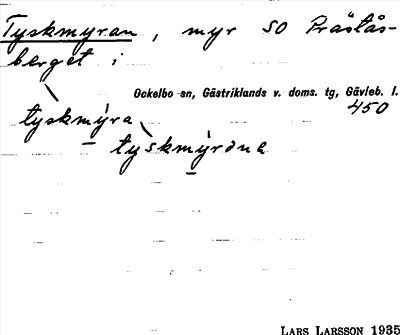 Tyskmyran, myr SO Prästås-
berget i
Ockelbo sn, Gästriklands v. doms. tg, Gävleb. l.
450
tỳskmýra
tỳskmýrəna
LARS LARSSON 1935